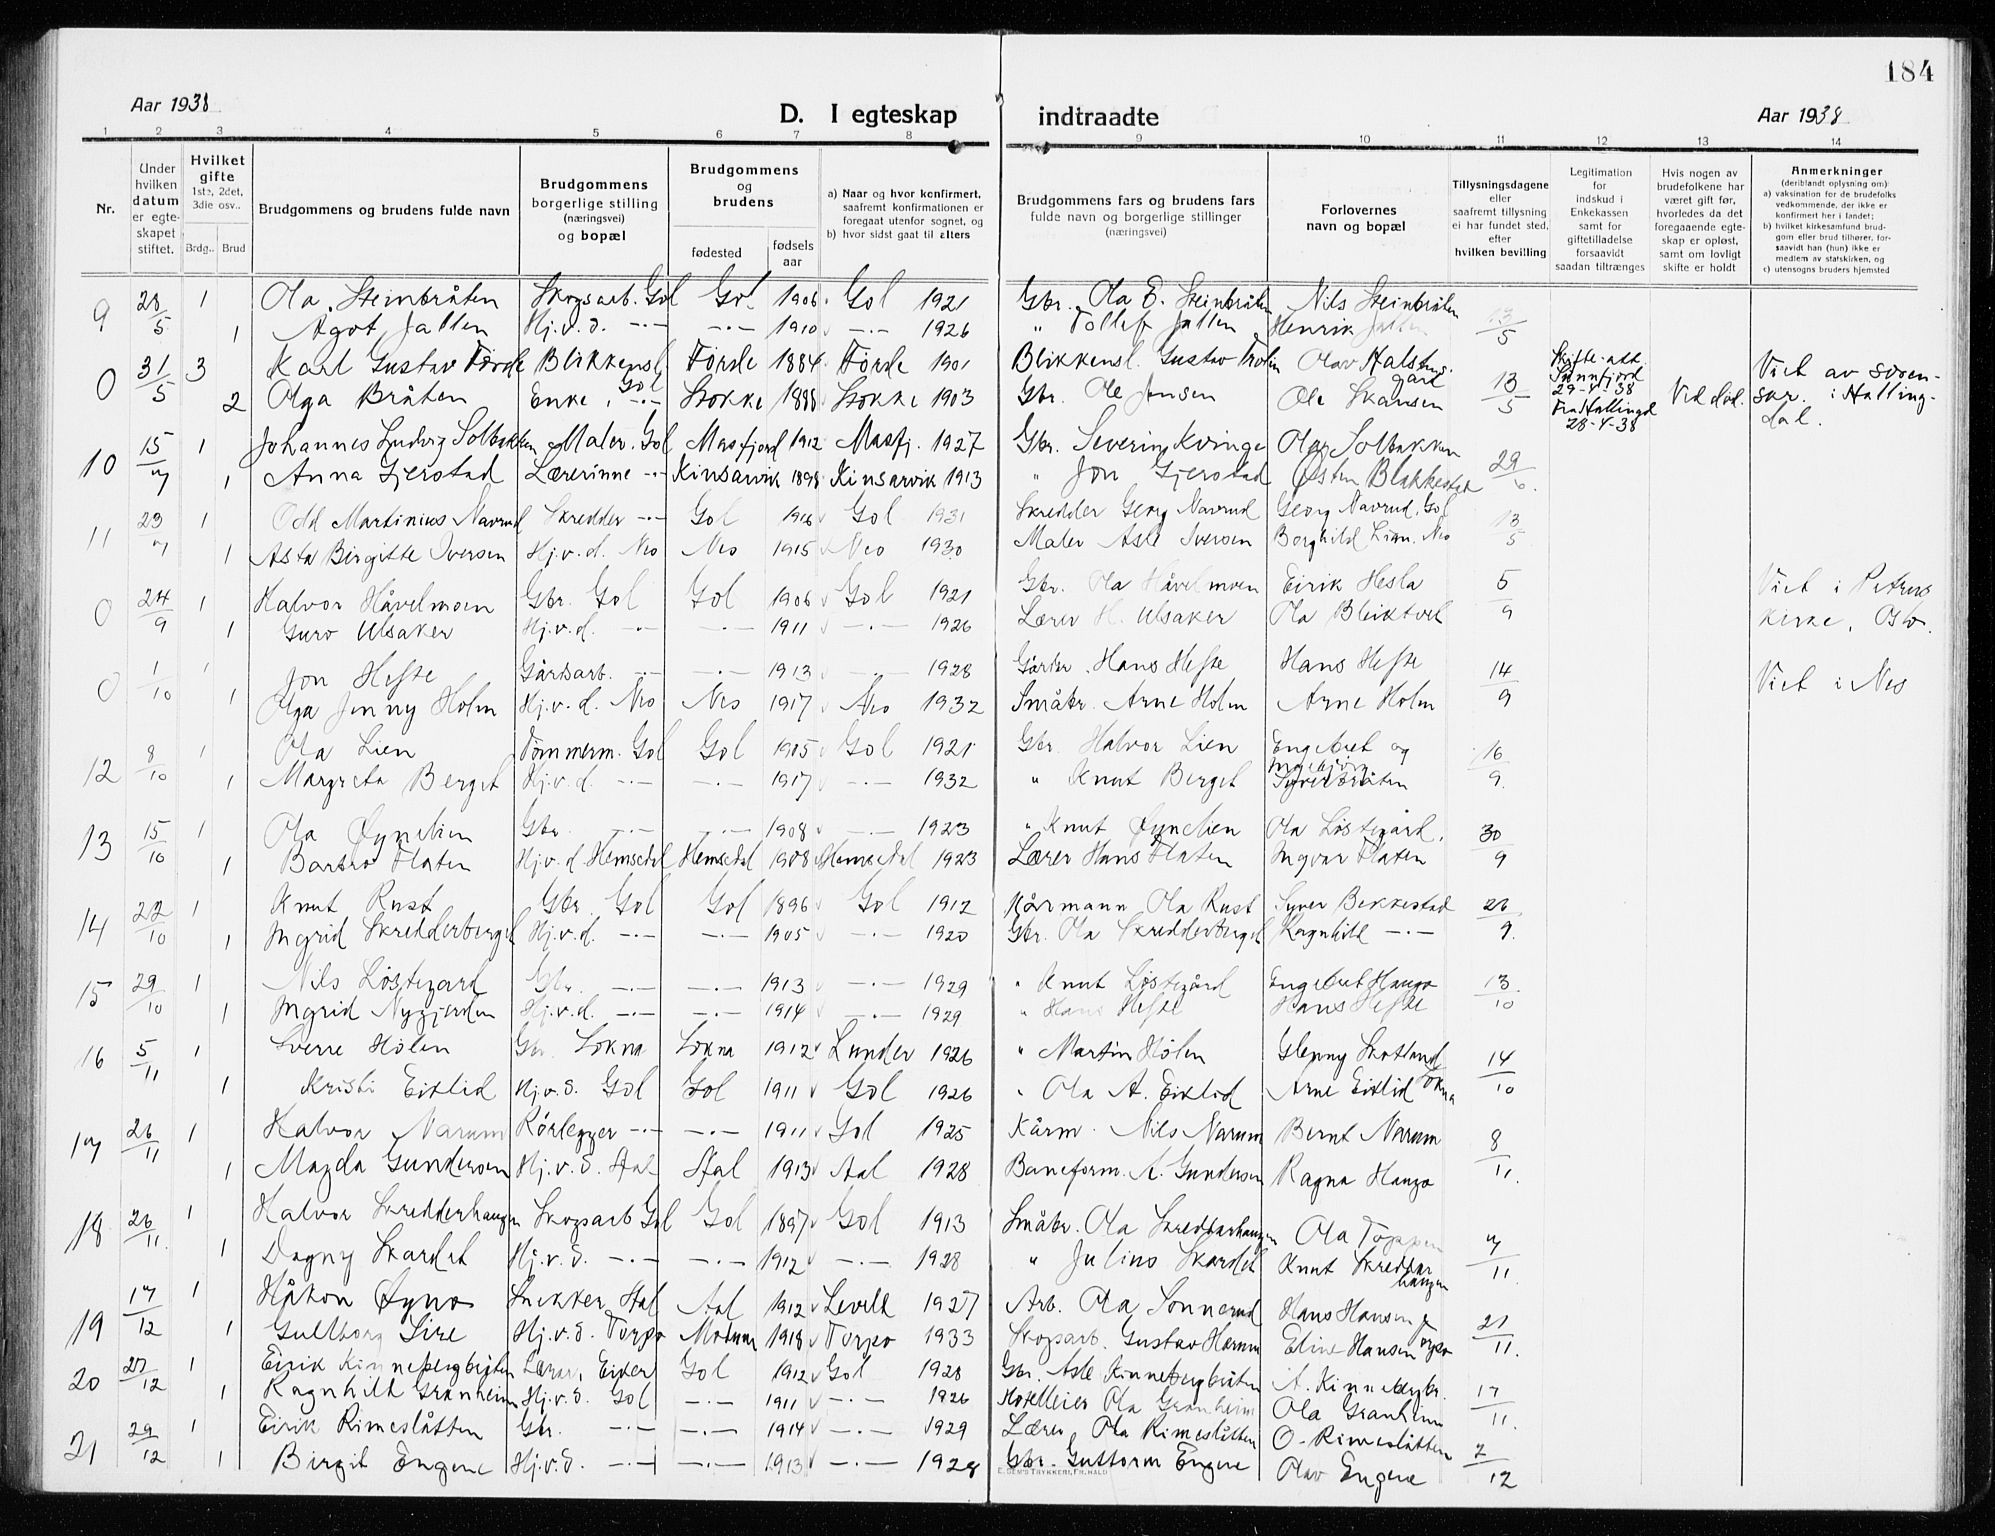 184
Aar 1938
D. I egteskap indtraadte
Aar 1938
1 2 3 4 5 6 7 8 9 10 11 12 13 14
Nr.
Under hvilken datum er egteskapet stiftet.
Hvilket gifte 1ste, 2det, 3die osv..
Brdg.. Brud
Brudgommens og brudens fulde navn
Brudgommens borgerlige stilling (næringsvei) og bopæl
Brudgommens og brudens
fødested
fødsels aar
a) Naar og hvor konfirmert, saafremt konfirmationen er foregaat utenfor sognet, og
b) hvor sidst gaat til alters
Brudgommens fars og brudens fars fulde navn og borgerlige stillinger (næringsvei)
Forlovernes navn og bopæl
Tillysningsdagene eller saafremt tillysning ei har fundet sted, efter hvilken bevilling
Legitimation for indskud i Enkekassen samt for giftetilladelse forsaavidt saadan tiltrænges
Hvis nogen av brudefolkene har været gift før, hvorledes da det foregaaende egteskap er opløst, samt om lovligt skifte er holdt
Anmerkninger (deriblandt oplysning om):
a) vaksination for de brudefolks vedkommende, der ikke er konfirmert her i landet;
b) hvilket kirkesamfund brudgom eller brud tilhører, forsaavidt han (hun) ikke er medlem av statskirken, og
c) utensogns bruders hjemsted
9 28/5 1 Ola Steinbråten Skogsarb. Gol Gol 1906 Gol 1921 Gbr. Ola E. Steinbråten Nils Steinbråten 13/5
1 Agot Jallen Hj.v.d. -·- -·- 1910 -·- 1926 " Tollef Jallen Henrik Jallen
0 31/5 3 Karl Gustav Førde Blikkensl. Gol Førde 1884 Førde 1901 Blikkensl. Gustav Olav Halstensgard 13/5 Skifte-att. Sunnfjord 29-4-38 Ved død. Viet av soren-
2 Olga Bråten Enke, -·- Stokke 1888 Stokke 1903 Gbr. Ole Jensen Ole Skansen Fra Hallingd 28-4-38 skr. i Halling-
dal.
10 15/7 1 Johannes Ludvig Solbakken Maler. Gol Masfjord 1912 Masfj. 1927 Gbr. Severin Kvinge Olav Solbakken 29/6
1 Anna Gjerstad Lærerinne -·- Kinsarvik 1898 Kinsarvik 1913 " Jon Gjerstad Østen Blakkestad
11 23/7 1 Odd Martinius Navrud Skredder -·- Gol 1916 Gol 1931 Skredder Georg Navrud Georg Navrud. Gol 13/5
1 Asta Birgitte Iversen Hj.v.d. Nes Nes 1915 Nes 1930 Maler Asle Iversen Borghild Lian. Nes
0 24/9 1 Halvor Håvelmoen Gbr. Gol Gol 1906 Gol 1921 Gbr. Ola Håvelmoen Eirik Hesla 5/9 Viet i Petrus
1 Guro Ulsaker Hj.v.d. -·- -·- 1911 -·- 1926 Lærer H. Ulsaker Ola Bleiktvet kirke, Oslo.
0 1/10 1 Jon Hefte Gårdsarb. -·- -·- 1913 -·- 1928 Gårdbr. Hans Hefte Hans Hefte 14/9 Viet i Nes
1 Olga Jenny Holm Hj.v.d. Nes Nes 1917 Nes 1932 Småbr. Arne Holm Arne Holm
12 8/10 1 Ola Lien Tømmerm. Gol Gol 1905 Gol 1921 Gbr. Halvor Lien Engebret og 16/9
1 Margreta Berget Hj.v.d. -·- -·- 1917 -·- 1932 " Knut Berget Ingebjørg Syversbråten
13 15/10 1 Ola Øynelien Gbr. -·- -·- 1908 -·- 1923 " Knut Øynelien Ola Løstegård. 30/9
1 Barbro Flaten Hj.v.d. Hemsedal Hemsedal 1908 Hemsedal 1923 Lærer Hans Flaten Ingvar Flaten
14 22/10 1 Knut Rust Gbr. Gol Gol 1896 Gol 1912 Kårmann Ola Rust Syver Bekkestad 26/9
1 Ingrid Skredderberget Hj.v.d. -·- -·- 1905 -·- 1920 Gbr. Ola Skredderberget Ragnhild -·-
15 29/10 1 Nils Løstegard Gbr. -·- -·- 1913 -·- 1929 " Knut Løstegård Engebret Haugo 13/10
1 Ingrid Nygjerden Hj.v.d. -·- -·- 1914 -·- 1929 " Hans Hefte Hans Hefte
16 5/11 1 Sverre Hølen Gbr. Sokna Sokna 1912 Lunder 1926 " Martin Hølen Glenny Skotland 14/10
1 Kristi Eiklid Hj.v.d. Gol Gol 1911 Gol 1926 " Ola A. Eiklid Arne Eiklid Sokna
17 26/11 1 Halvor Narum Rørlegger -·- -·- 1911 Gol 1925 Kårm. Nils Narum Bernt Narum 8/11.
1 Magda Gundersen Hj.v.d. Aal Aal 1913 Aal 1928 Baneform. A. Gundersen Ragna Haugo
18 26/11. 1 Halvor Skredderhaugen Skogsarb Gol Gol 1897 Gol 1913 Småbr. Ola Skredderhaugen Ola Toppen 7/11.
1 Dagny Skardet Hj.v.d. -·- -·- 1912 -·- 1928 " Julius Skardet Knut Skredderhaugen
19 17/12 1 Håkon Øyno Snekker Aal Aal 1912 Leveld 1927 Arb. Ola Sønnerud Hans Hansen 21/11.
1 Gullborg Lire Hj.v.d. Torpo Modum 1918 Torpo 1933 Skogsarb. Gustav Harum Eline Hansen Torpo
20 27/12 1 Eirik Kinnebergbråten Lærer, Eiker Gol 1912 Gol 1928 Gbr. Asle Kinnebergbråten A. Kinnebergbr. 17/11.
1 Ragnhild Granheim Hj.v.d. Gol -·- 1911 -·- 1926 Hotelleier Ola Granheim Ola Granheim
21 29/12 1 Eirik Rimeslåtten Gbr. -·- -·- 1914 -·- 1929 Lærer Ola Rimeslåtten O. Rimeslåtten 7/12
1 Birgit Engene Hj.v.d. -·- -·- 1913 -·- 1928 Gbr. Guttorm Engene Olav Engene
E. SEM'S TRYKKERI, FR.HALD